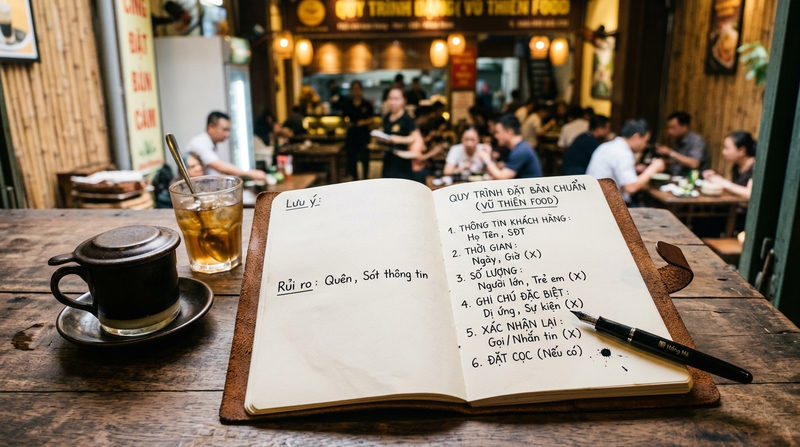 QUY TRÌNH
VŨ THIÊN FOOD
Lưu ý:
Rủi ro: Quên, Sót thông tin
QUY TRÌNH ĐẶT BÀN CHUẨN
(VŨ THIÊN FOOD)
1. THÔNG TIN KHÁCH HÀNG:
Họ Tên, SĐT
2. THỜI GIAN:
Ngày, Giờ (X)
3. SỐ LƯỢNG:
Người lớn, Trẻ em (X)
4. GHI CHÚ ĐẶC BIỆT:
Dị ứng, Sự kiện (X)
5. XÁC NHẬN LẠI:
Gọi/Nhắn tin (X)
6. ĐẶT CỌC (Nếu có)